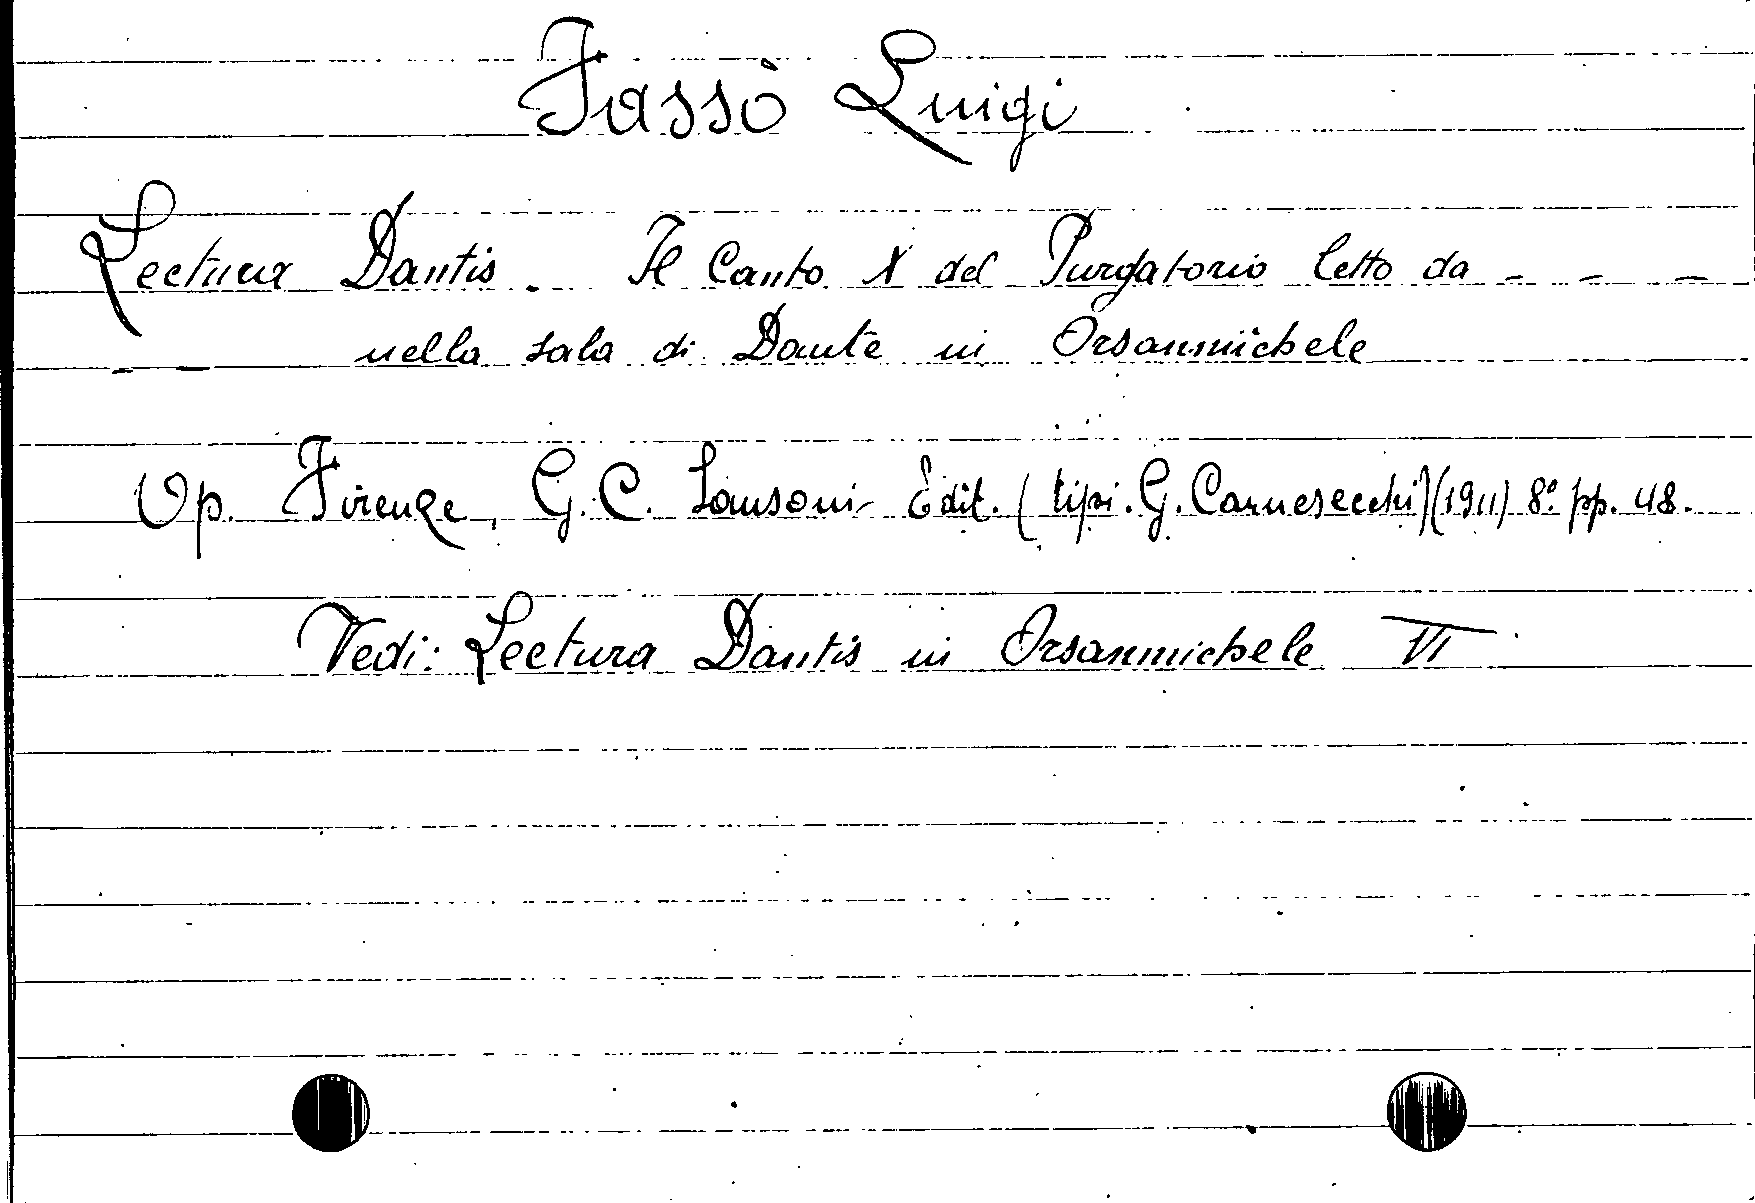 Fassò Luigi
Lectura Dantis. Il Canto X del Purgatorio letto da - - -
- - nella sala di Dante in Orsanmichele
Op. Firenze, G. C. Sansoni Edit. (tipi. G. Carnesecchi) (1911) 8° pp. 48.
Vedi: Lectura Dantis in Orsanmichele VI